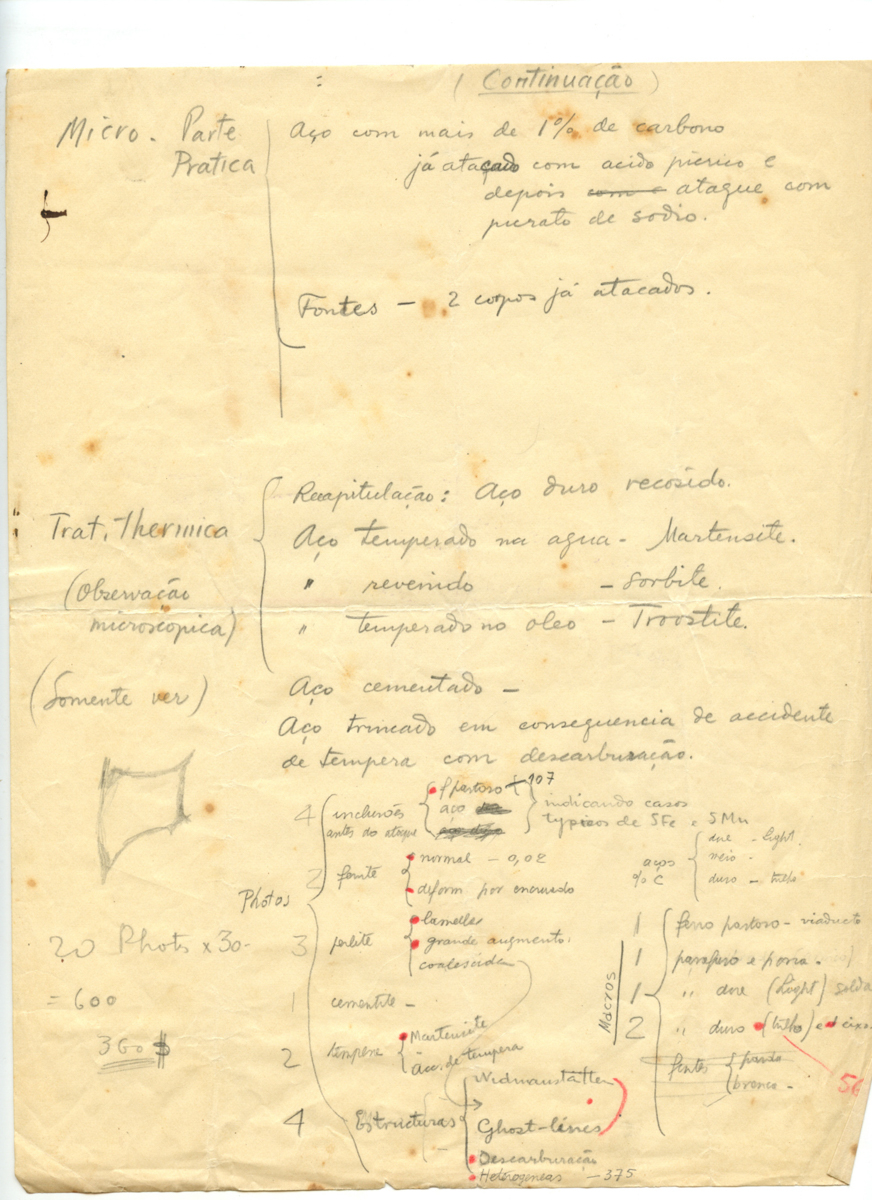 (Continuação)
Micro. Parte Pratica
Aço com mais de 1% de carbono
já atacado com acido picrico e
depois ataque com
picrato de sodio.
Fontes — 2 corpos já atacados.
Trat. Thermica
(Observação
microscopica)
Recapitulação: Aço duro recosido.
Aço temperado na agua - Martensite.
" revenido - Sorbite.
" temperado no oleo - Troostite.
(Somente ver)
Aço cementado —
Aço trincado em consequencia de accidente
de tempera com descarburação.
Photos
4 inclusões
antes do ataque
f pastoso + 107
aço
indicando casos
typicos de SFe e SMn
2 ferrite
normal - 0,02
deform por encruado
aços
% C
doce - Light.
meio -
duro - trilho
3 perlite
lamellar
grande augmento.
coalescida
1 cementite -
2 tempera
Martensite
Acc. de tempera
4 Estructuras
Widmanstätten
Ghost-lines
Descarburação
Heterogeneas - 375
20 Phots x 30-
= 600
360 $
Macros
1 ferro pastoso - viaducto
1 parafuso e porca -
1 " doce (Light) solda
2 " duro (trilho) e eixo
fontes
parda
branca -
56